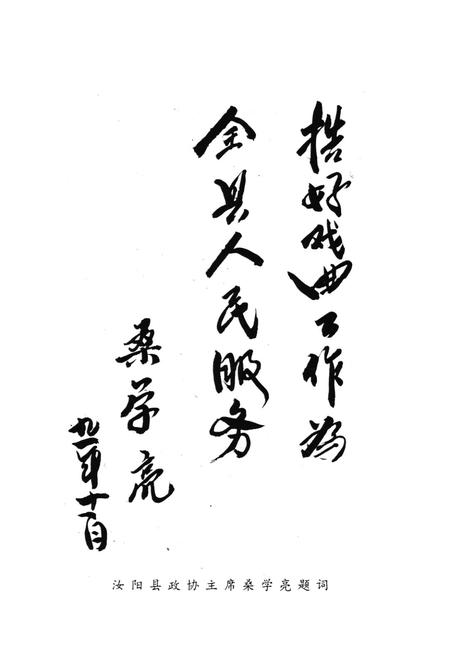 搞好戏曲工作为
全县人民服务
桑学亮
九一年十一月
汝阳县政协主席桑学亮题词